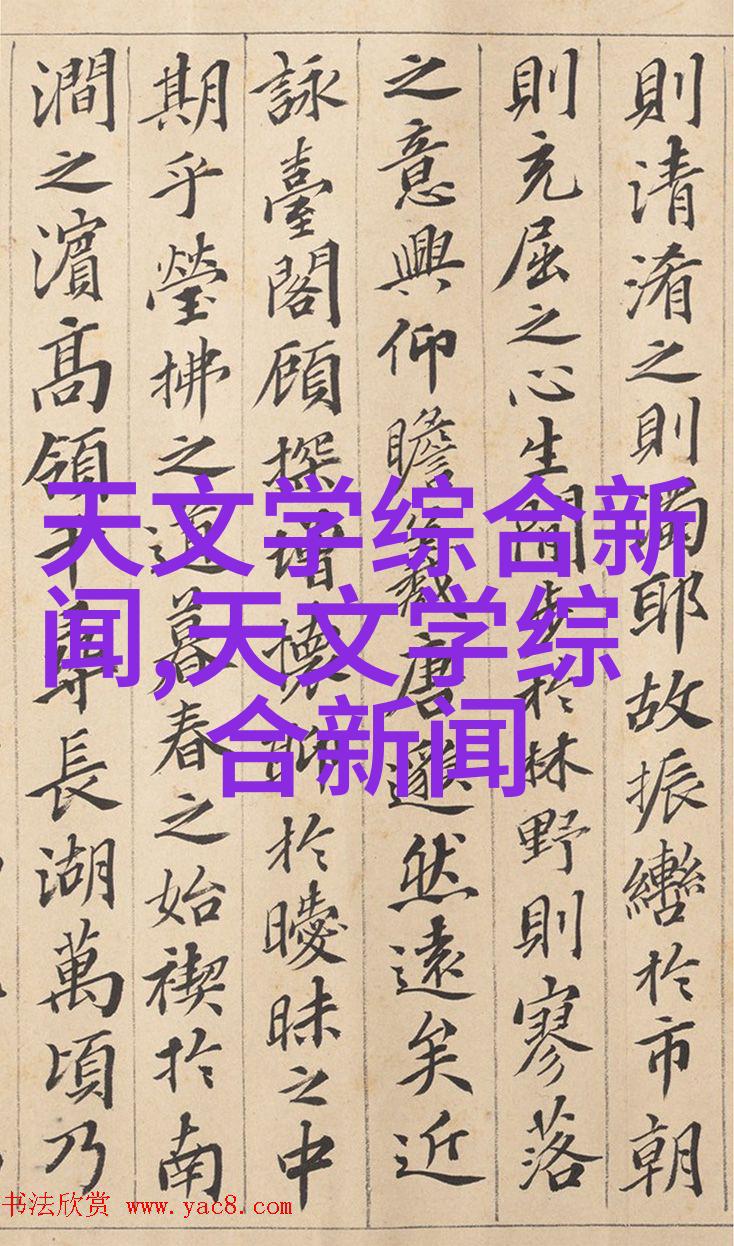 則清淆之則濁耶故振轡於市朝
則充屈之心生闊步於林野則寥落
之意興仰瞻羲唐邈然遠矣近
詠臺閣顧探增懷聊於曖昧之中
期乎瑩拂之道暮春之始禊於南
澗之濱高領千尋長湖萬頃乃
天文学综合新
闻,天文学综
合新闻
书法欣赏 www.yac8.com